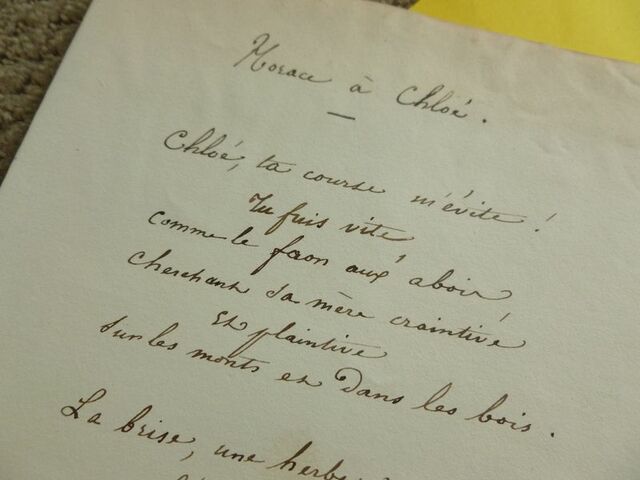 Horace à Chloé.
Chloé, ta course m'évite !
Tu fuis vite,
comme le faon aux abois,
cherchant sa mère craintive
et plaintive
sur les monts et dans les bois.
La brise, une herbe